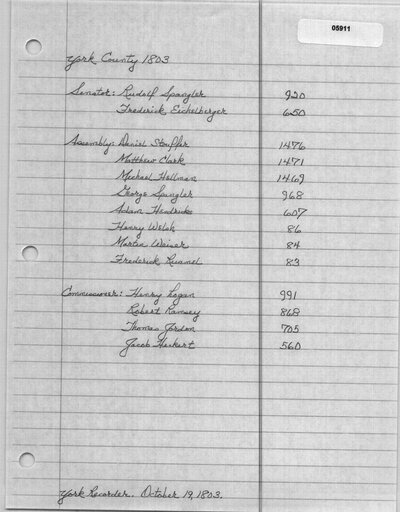 05911
York County 1803
Senator: Rudolf Spangler 920
Frederick Eichelberger 650
Assembly: Daniel Stouffer 1476
Matthew Clark 1471
Michael Hellman 1469
George Spangler 968
Adam Hendricks 607
Henry Welsh 86
Martin Weiser 84
Frederick Runnel 83
Commissioner: Henry Logan 991
Robert Ramsey 868
Thomas Jordon 705
Jacob Heckert 560
York Recorder. October 19, 1803.